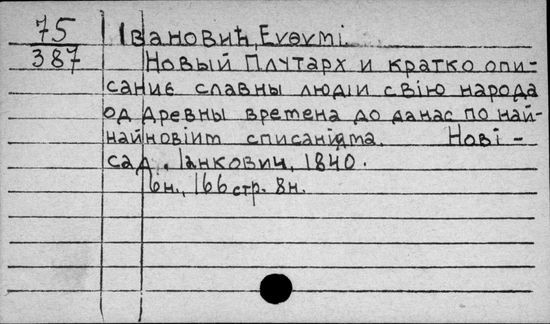 75 Івановић, Еѵѳѵmi.
387 Новый Плутарх и кратко опи-
саниє славны людіи свію народа
од древны времена до данас по най-
найновіим списаніята. Нові-
сад, Іанкович, 1840.
6н., 166 стр. 8н.